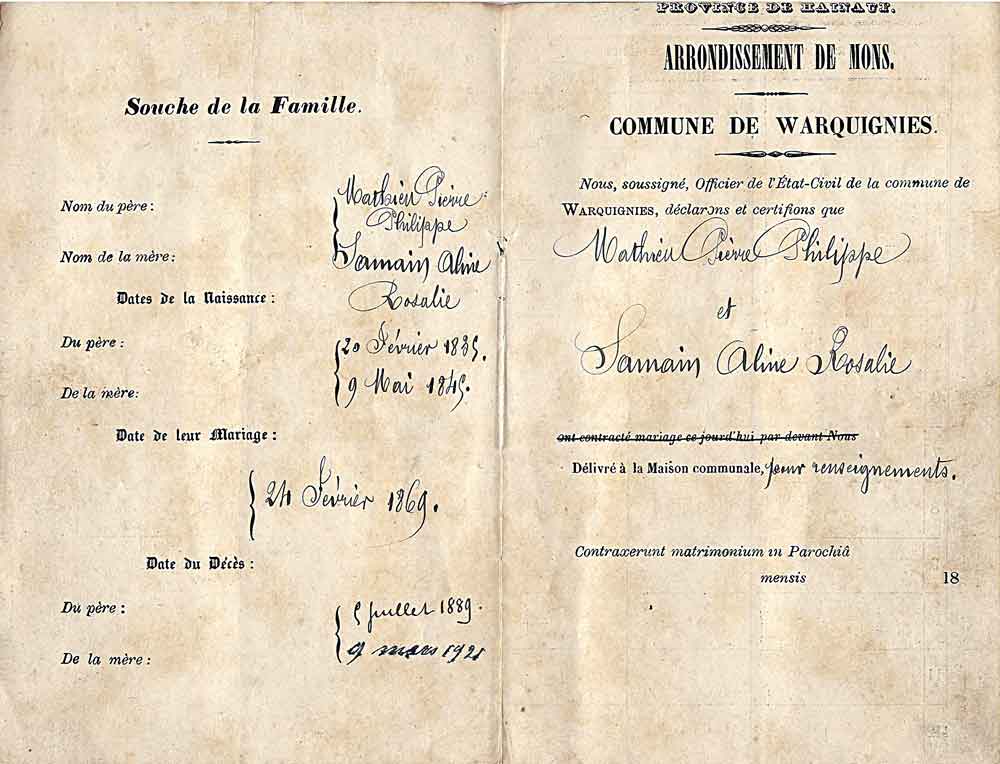 Souche de la Famille.
Nom du père :
Mathieu Pierre
Philippe
Nom de la mère :
Samain Aline
Dates de la Naissance :
Rosalie
Du père :
20 Février 1835.
De la mère:
9 Mai 1845.
Date de leur Mariage :
24 Février 1869.
Date du Décès :
Du père :
5 Juillet 1889.
De la mère :
9 mars 1921
PROVINCE DE HAINAUT.
ARRONDISSEMENT DE MONS.
COMMUNE DE WARQUIGNIES.
Nous, soussigné, Officier de l'État-Civil de la commune de
WARQUIGNIES, déclarons et certifions que
Mathieu Pierre Philippe
et
Samain Aline Rosalie
ont contracté mariage ce jourd'hui par devant Nous
Délivré à la Maison communale, pour renseignements.
Contraxerunt matrimonium in Parochiâ
mensis 18